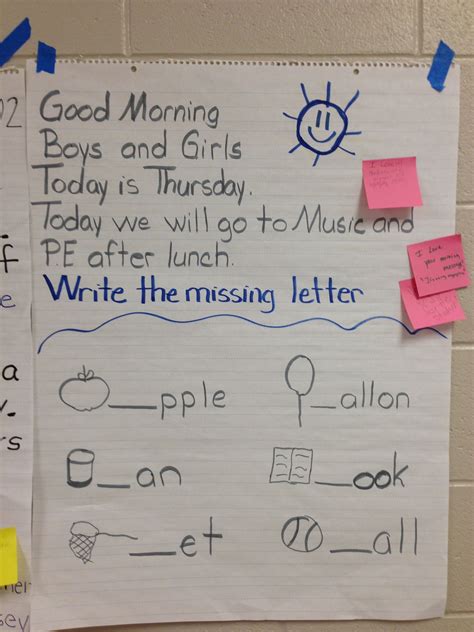 Good Morning
Boys and Girls
Today is Thursday.
Today we will go to Music and
P.E after lunch.
Write the missing letter
_pple
_allon
_an
_ook
_et
_all
I love
your morning
message!